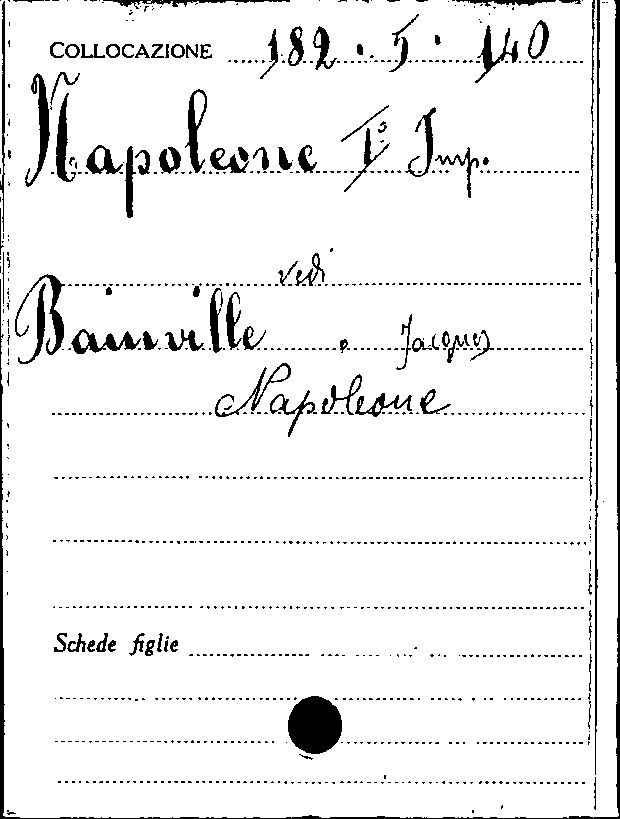 COLLOCAZIONE 182 . 5 . 140
Napoleone I° Imp.
vedi
Bainville , Jacques
Napoleone
Schede figlie